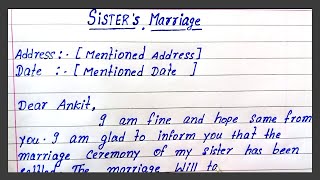 SISTER's Marriage
Address:- [Mentioned Address]
Date :- [Mentioned Date ]
Dear Ankit,
I am fine and hope same from
you. I am glad to inform you that the
marriage ceremony of my sister has been
The marriage will to